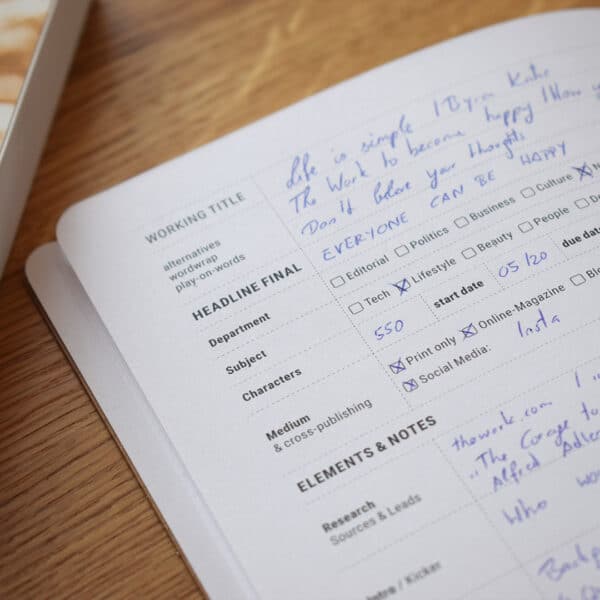 WORKING TITLE
Life is simple | Byron Katie
alternatives
wordwrap
play-on-words
The Work to become happy | How
Don't believe your thoughts
HEADLINE FINAL
EVERYONE CAN BE HAPPY
Department
☐ Editorial ☐ Politics ☐ Business ☐ Culture ☒
Subject
☐ Tech ☒ Lifestyle ☐ Beauty ☐ People ☐
Characters
550 start date 05/20 due date
Medium
& cross-publishing
☒ Print only ☒ Online-Magazine ☐
☒ Social Media: Insta
ELEMENTS & NOTES
Research
Sources & Leads
thework.com |
"The Corage to
Alfred Adler
Who
/ Kicker